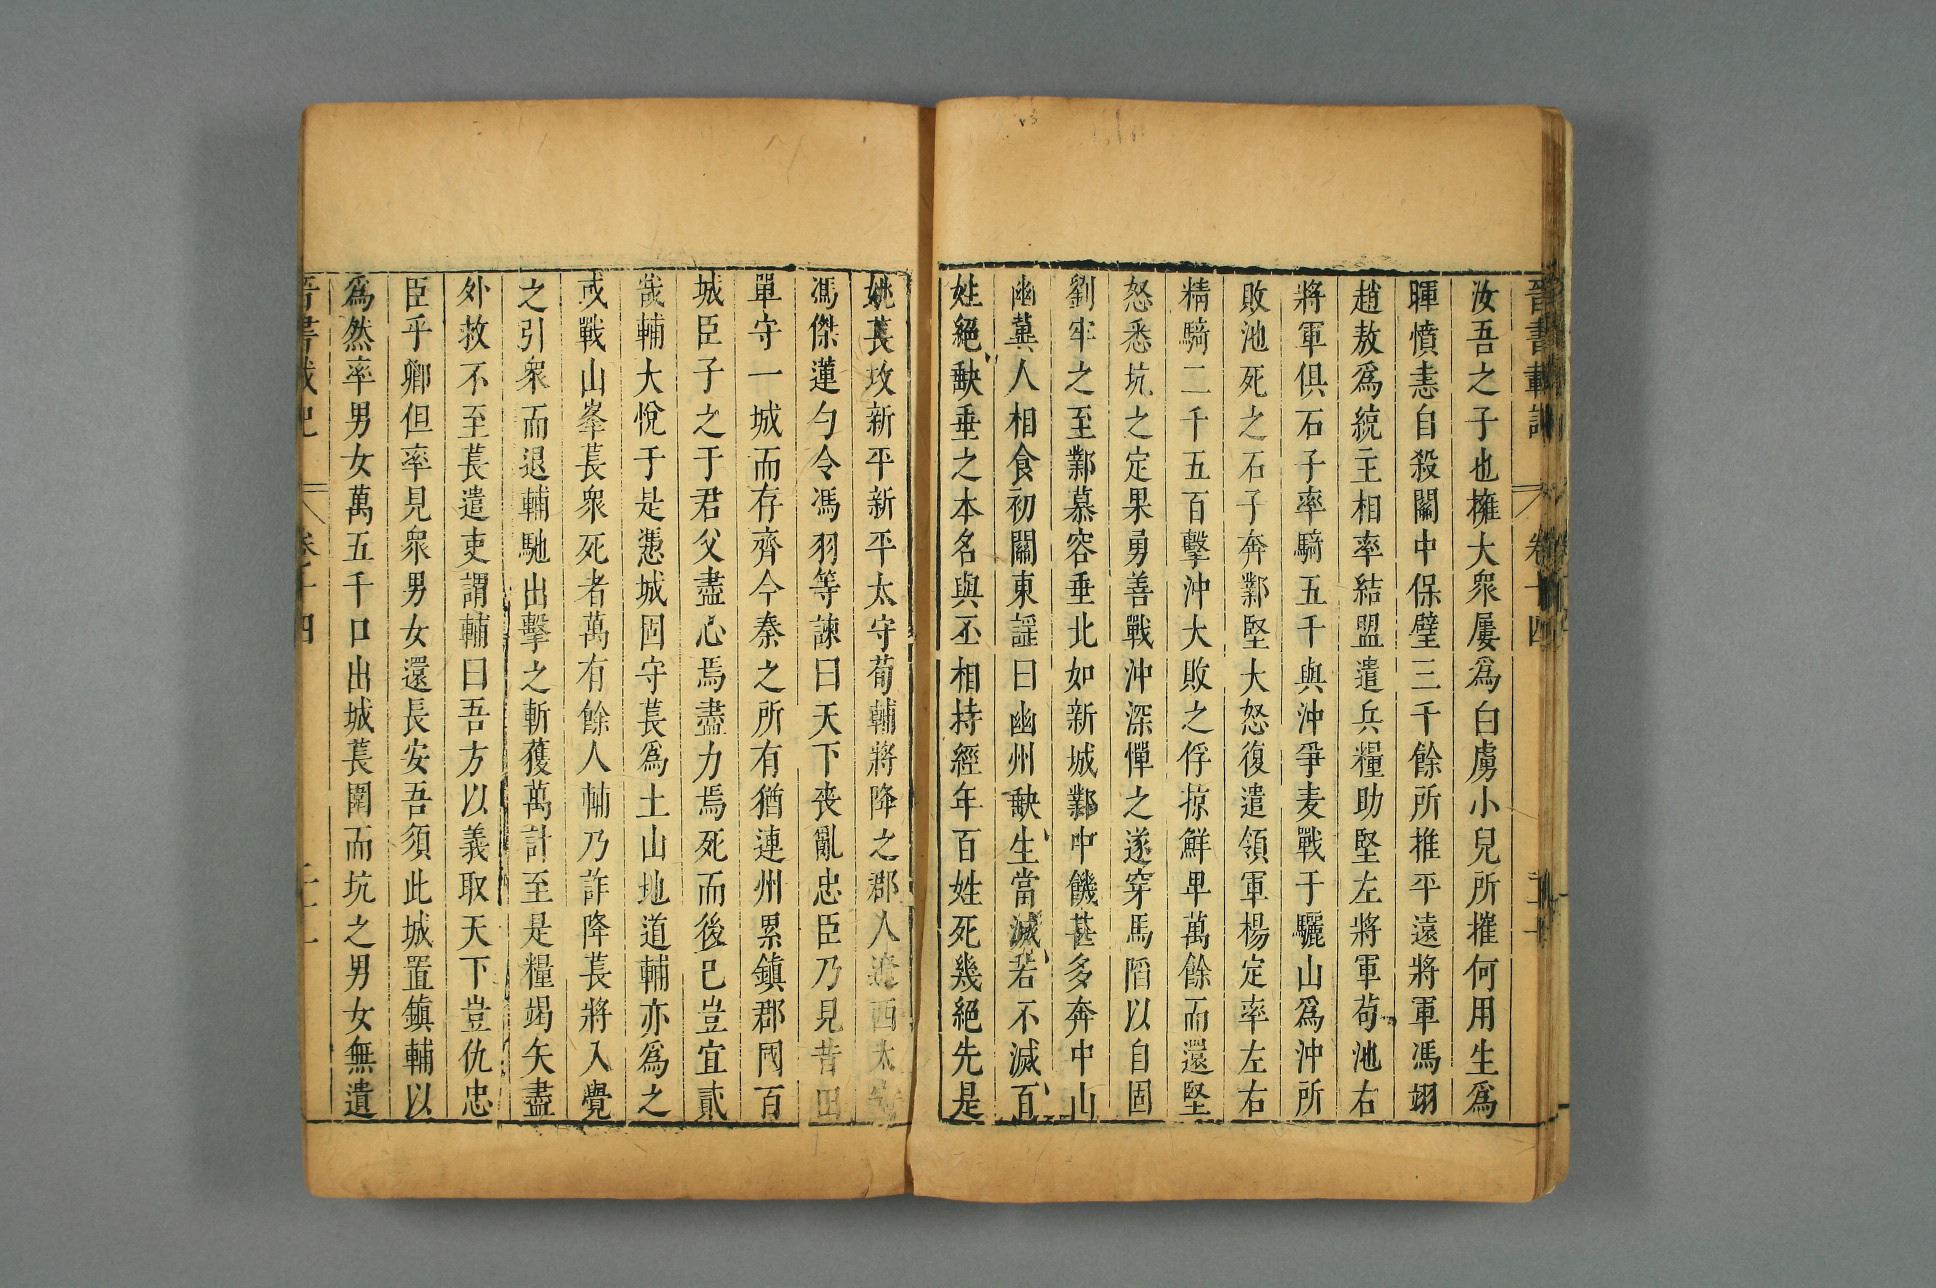 晉書載記 卷十四
汝吾之子也擁大衆屢爲白虜小兒所摧何用生爲
暉憤恚自殺關中保壁三千餘所推平遠將軍馮翊
趙敖爲統主相率結盟遣兵糧助堅左將軍苟池右
將軍俱石子率騎五千與沖爭麦戰于驪山爲沖所
敗池死之石子奔鄴堅大怒復遣領軍楊定率左右
精騎二千五百擊沖大敗之俘掠鮮卑萬餘而還堅
怒悉坑之定果勇善戰沖深憚之遂穿馬陷以自固
劉牢之至鄴慕容垂北如新城鄴中饑甚多奔中山
幽冀人相食初關東謡曰幽州䰛生當滅若不滅百
姓絕䰛垂之本名與丕相持經年百姓死幾絕先是
姚萇攻新平新平太守茍輔將降之郡人遼西太守
馮傑蓮勺令馮羽等諫曰天下喪亂忠臣乃見昔田
單守一城而存齊今秦之所有猶連州累鎮郡國百
城臣子之于君父盡心焉盡力焉死而後已豈宜貳
哉輔大悅于是憑城固守萇爲土山地道輔亦爲之
或戰山峯萇衆死者萬有餘人輔乃詐降萇將入覺
之引衆而退輔馳出擊之斬獲萬計至是糧竭矢盡
外救不至萇遣吏謂輔曰吾方以義取天下豈仇忠
臣乎卿但率見衆男女還長安吾須此城置鎮輔以
爲然率男女萬五千口出城萇圍而坑之男女無遺